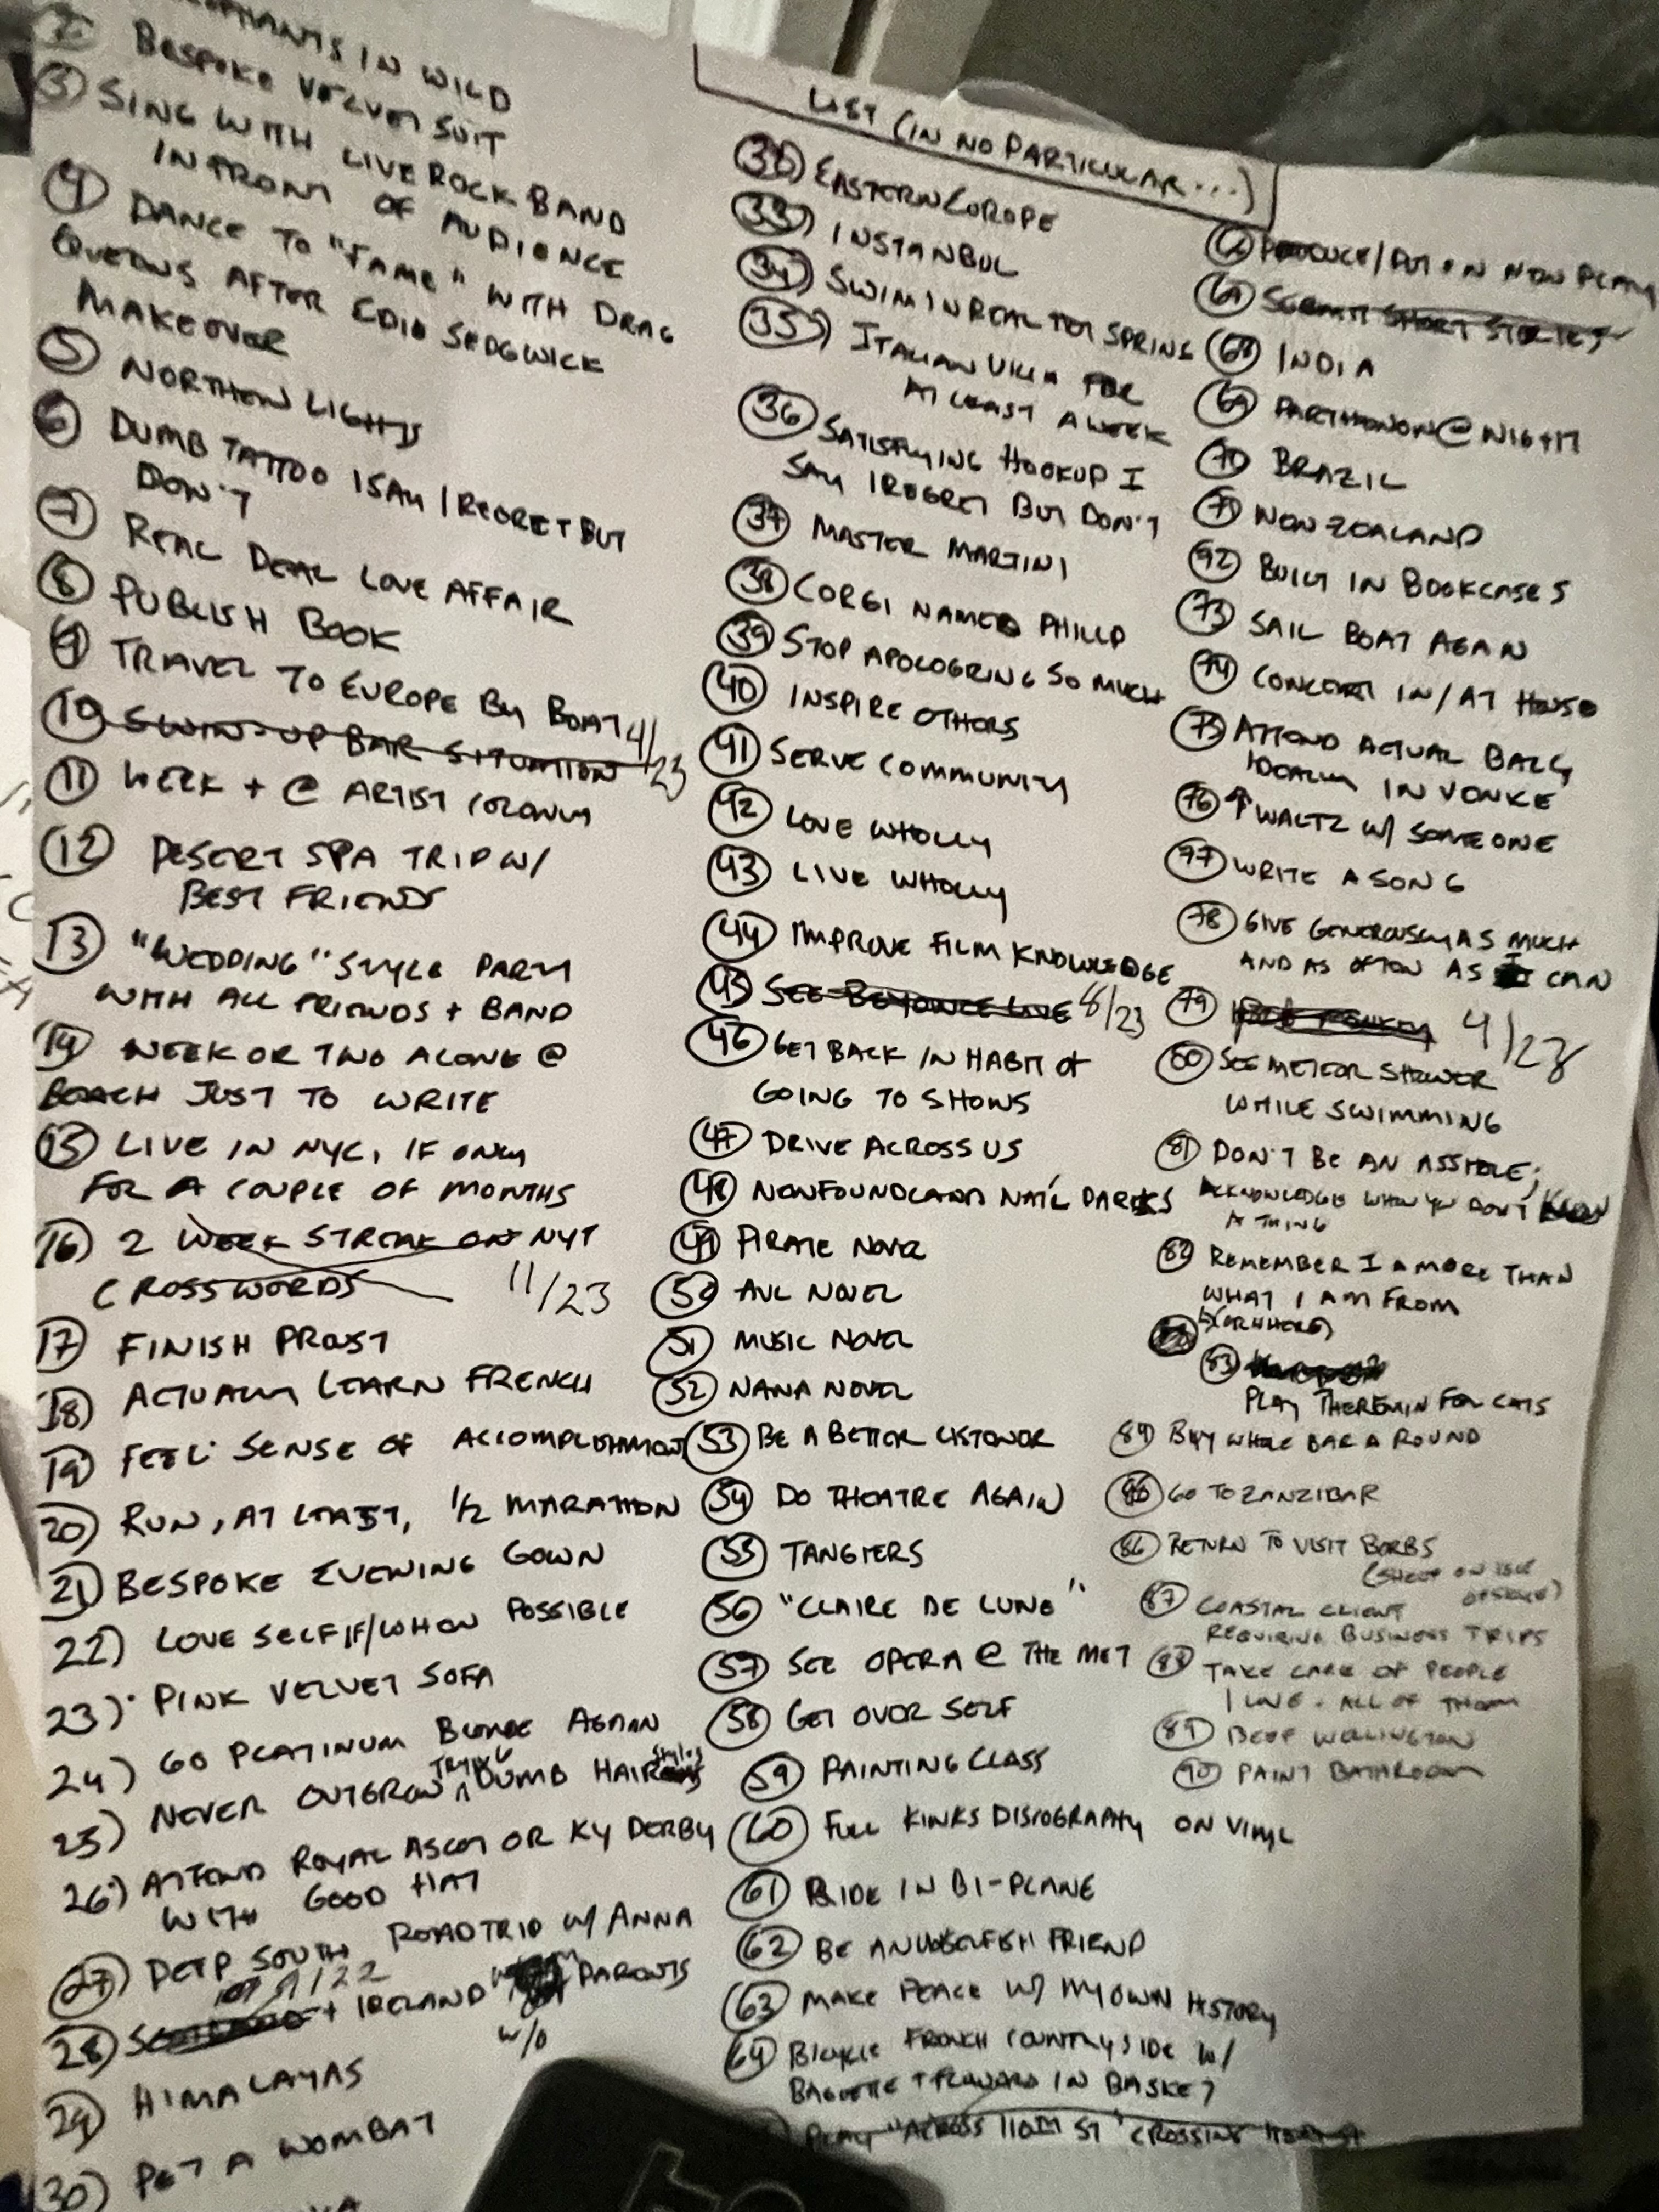 IN WILD
2) BESPOKE VELVET SUIT
3) SING WITH LIVE ROCK BAND
IN FRONT OF AUDIENCE
4) DANCE TO "FAME" WITH DRAG
QUEENS AFTER EDIE SEDGWICK
MAKEOVER
5) NORTHERN LIGHTS
6) DUMB TATTOO I SAY I REGRET BUT
DON'T
7) REAL DEAL LOVE AFFAIR
8) PUBLISH BOOK
9) TRAVEL TO EUROPE BY BOAT
10) SWIM-UP BAR SITUATION 4/23
11) WEEK + @ ARTIST COLONY
12) DESERT SPA TRIP W/
BEST FRIENDS
13) "WEDDING" STYLE PARTY
WITH ALL FRIENDS + BAND
14) WEEK OR TWO ALONE @
BEACH JUST TO WRITE
15) LIVE IN NYC, IF ONLY
FOR A COUPLE OF MONTHS
16) 2 WEEK STREAK ON NYT
CROSSWORDS 11/23
17) FINISH PROUST
18) ACTUALLY LEARN FRENCH
19) FEEL SENSE OF ACCOMPLISHMENT
20) RUN, AT LEAST, 1/2 MARATHON
21) BESPOKE EVENING GOWN
22) LOVE SELF IF/WHEN POSSIBLE
23) PINK VELVET SOFA
24) GO PLATINUM BLONDE AGAIN
25) NEVER OUTGROW TRYING DUMB HAIR STYLES
26) ATTEND ROYAL ASCOT OR KY DERBY
WITH GOOD HAT
27) DEEP SOUTH ROADTRIP W/ ANNA
9/22
28) SCOTLAND + IRELAND PARENTS
W/O
29) HIMALAYAS
30) PET A WOMBAT
LIST (IN NO PARTICULAR...)
32) EASTERN EUROPE
33) INSTANBUL
34) SWIM IN REAL HOT SPRING
35) ITALIAN VILLA FOR
AT LEAST A WEEK
36) SATISFYING HOOKUP I
SAY I REGRET BUT DON'T
37) MASTER MARTINI
38) CORGI NAMED PHILLIP
39) STOP APOLOGRING SO MUCH
40) INSPIRE OTHERS
41) SERVE COMMUNITY
42) LOVE WHOLLY
43) LIVE WHOLLY
44) IMPROVE FILM KNOWLEDGE
45) SEE BEYONCE LIVE 8/23
46) GET BACK IN HABIT OF
GOING TO SHOWS
47) DRIVE ACROSS US
48) NEWFOUNDLAND NAT'L PARKS
49) PIRATE NOVEL
50) AVL NOVEL
51) MUSIC NOVEL
52) NANA NOVEL
53) BE A BETTER LISTENER
54) DO THEATRE AGAIN
55) TANGIERS
56) "CLAIRE DE LUNE"
57) SEE OPERA @ THE MET
58) GET OVER SELF
59) PAINTING CLASS
60) FULL KINKS DISCOGRAPHY ON VINYL
61) RIDE IN BI-PLANE
62) BE AN UNSELFISH FRIEND
63) MAKE PEACE W/ MY OWN HISTORY
64) BICYCLE FRENCH COUNTRYSIDE W/
BAGUETTE + FLOWERS IN BASKET
PLAY "ACROSS 110TH ST" CROSSING 110TH ST
PRODUCE/PUT ON NEW PLAY
SUBMIT SHORT STORIES
68) INDIA
69) PARTHENON @ NIGHT
70) BRAZIL
71) NEW ZEALAND
92) BUILT IN BOOKCASES
73) SAIL BOAT AGAIN
74) CONCERT IN/AT HOUSE
75) ATTEND ACTUAL BALL,
IDEALLY IN VENICE
76) ↑ WALTZ W/ SOMEONE
77) WRITE A SONG
78) GIVE GENEROUSLY AS MUCH
AND AS OFTEN AS I CAN
79) 4/23
80) SEE METEOR SHOWER
WHILE SWIMMING
81) DON'T BE AN ASSHOLE;
ACKNOWLEDGE WHEN YOU DON'T KNOW
A THING
82) REMEMBER I AM MORE THAN
WHAT I AM FROM
(OR WHERE)
83)
PLAY THEREMIN FOR CATS
84) BUY WHOLE BAR A ROUND
85) GO TO ZANZIBAR
86) RETURN TO VISIT BARBS
(SHEEP ON ISLE OF SKYE)
87) COASTAL CLIENT
REQUIRING BUSINESS TRIPS
88) TAKE CARE OF PEOPLE
I LOVE. ALL OF THEM
89) BEEF WELLINGTON
90) PAINT BATHROOM